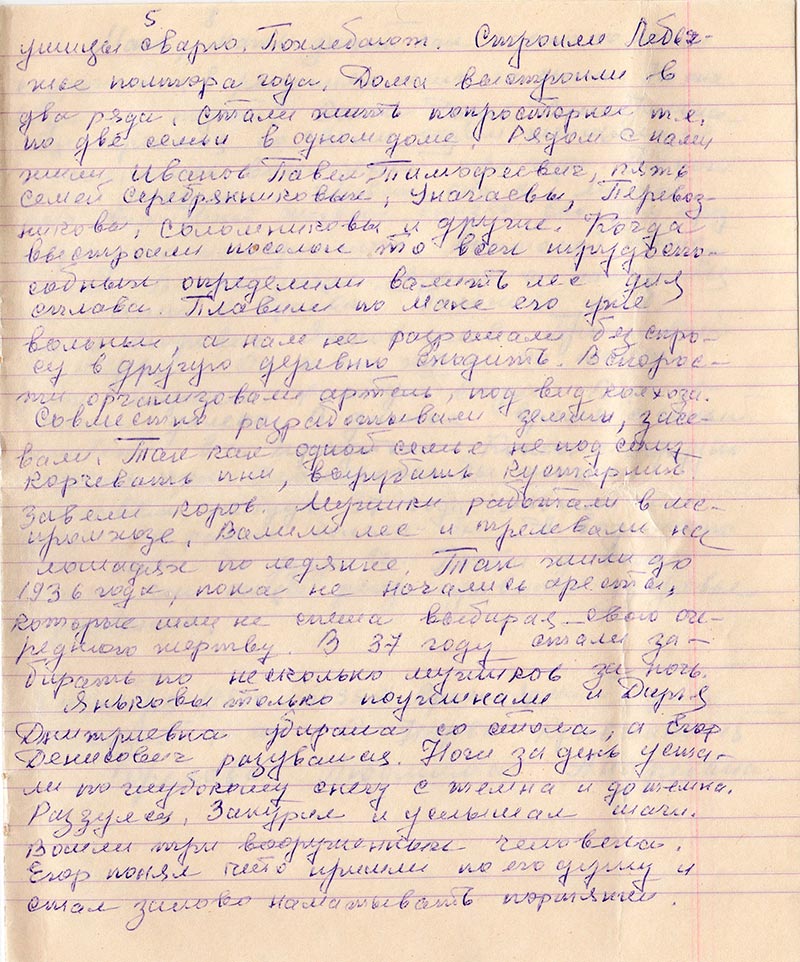 5
ушицы сварю. Похлебают. Строили Лебя-
жье полтора года. Дома выстроили в
два ряда, стали жить попросторнее т.е.
по две семьи в одном доме. Рядом с нами
жили Иванов Павел Тимофеевич, пять
семей Серебрянниковых, Уначаевы, Перевоз-
никовы, Соломниковы и другие. Когда
выстроили поселок то всех трудоспо-
собных определили валить лес для
сплава. Плавили по Маке его уже
вольные, а нам не разрешали без спро-
су в другую деревню сходить. Вскорос-
ти организовали артель, под вид колхоза.
Совместно разрабатывали земли, засе-
вали. Так как одной семье не под силу
корчевать пни, вырубать кустарник
Завели коров. Мужики работали в ле-
спромхозе. Валили лес и трелевали на
лошадях по ледянке. Так жили до
1936 года, пока не начались аресты,
которые шли не спеша выбирая свою оче-
редного жертву. В 37 году стали за-
бирать по несколько мужиков за ночь.
Яньковы только поужинали и Дарья
Дмитриевна убирала со стола, а Егор
Денисович разувался. Ноги за день уста-
ли по глубокому снегу с темна и до темна.
Раззулся, Закурил и услышал шаги.
Вошли три вооруженных человека.
Егор понял что пришли по его душу и
стал заново наматывать портянки.